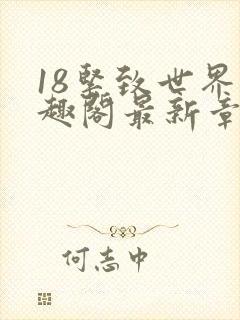 18坚致世界
趣阁最新章
何志中